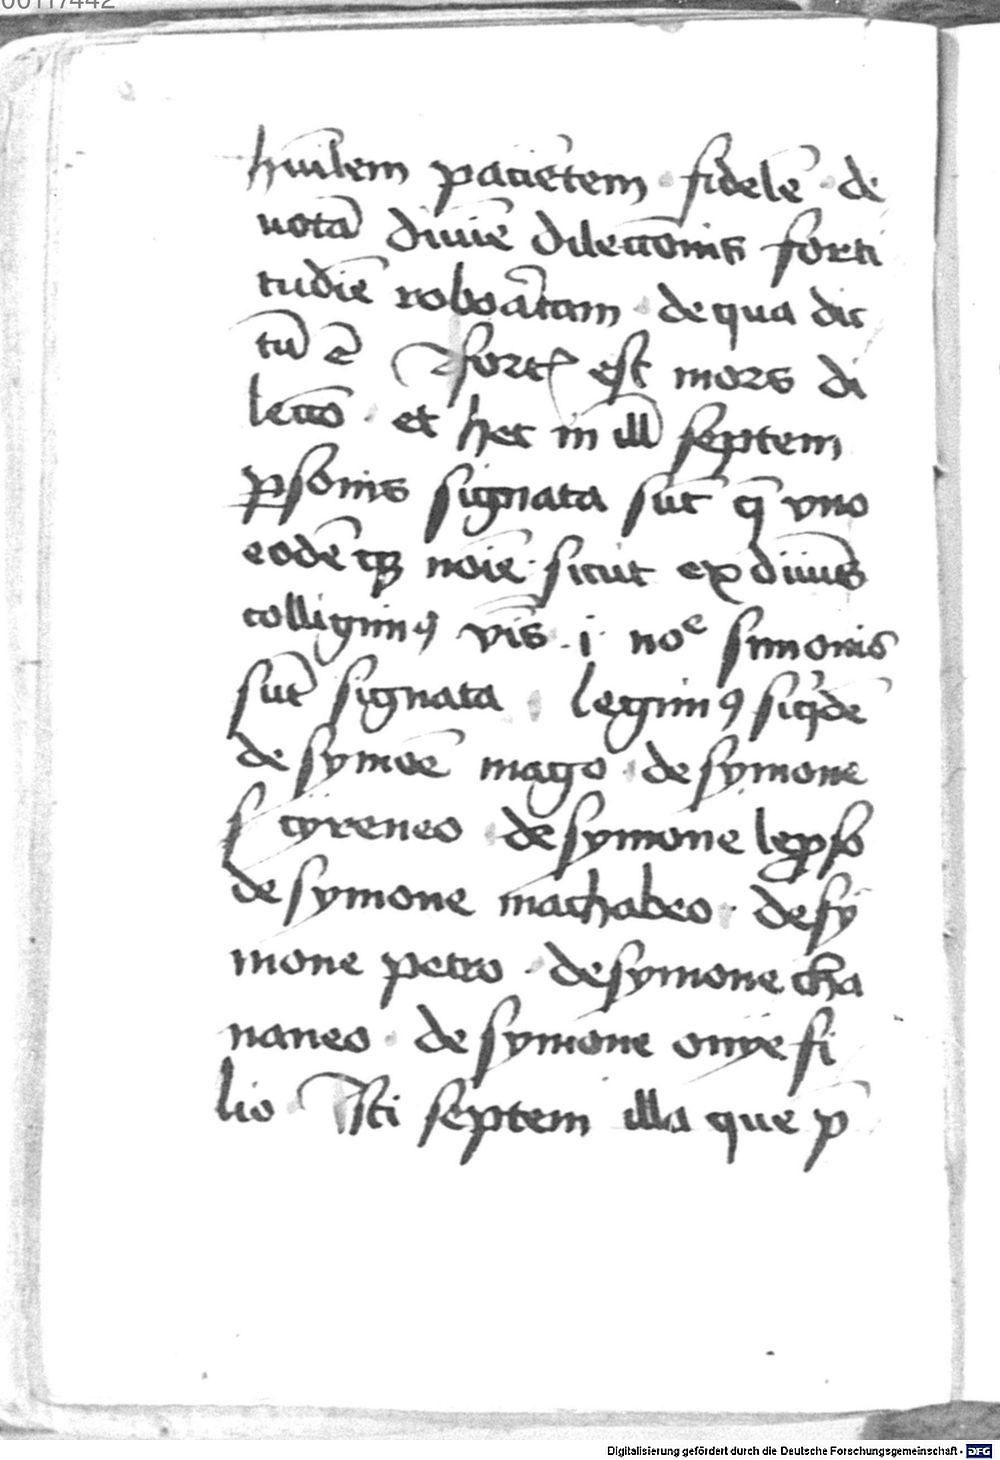 00117442
hūilem paciētem · fidelē · de
uotā diuīe dilecc̄onis forti
tudīe roboātam · de qua dic
tū ē fort est mors di
lecc̄o · et hec in illꝭ septem
ꝑsonis signata sūt q̄ vno
eodēqꝫ noīe · sicut ex diuīs
colligimꝰ vīs · i · noᵉ simonis
sūt signata · legimꝰ siqͥdē
de symoē mago · de symone
cyreneo · de symone lepso
de symone machabeo · de sy
mone petro · de symone cha
naneo · de symone onye fi
lio · Isti septem illa que p̄
Digitalisierung gefördert durch die Deutsche Forschungsgemeinschaft - DFG